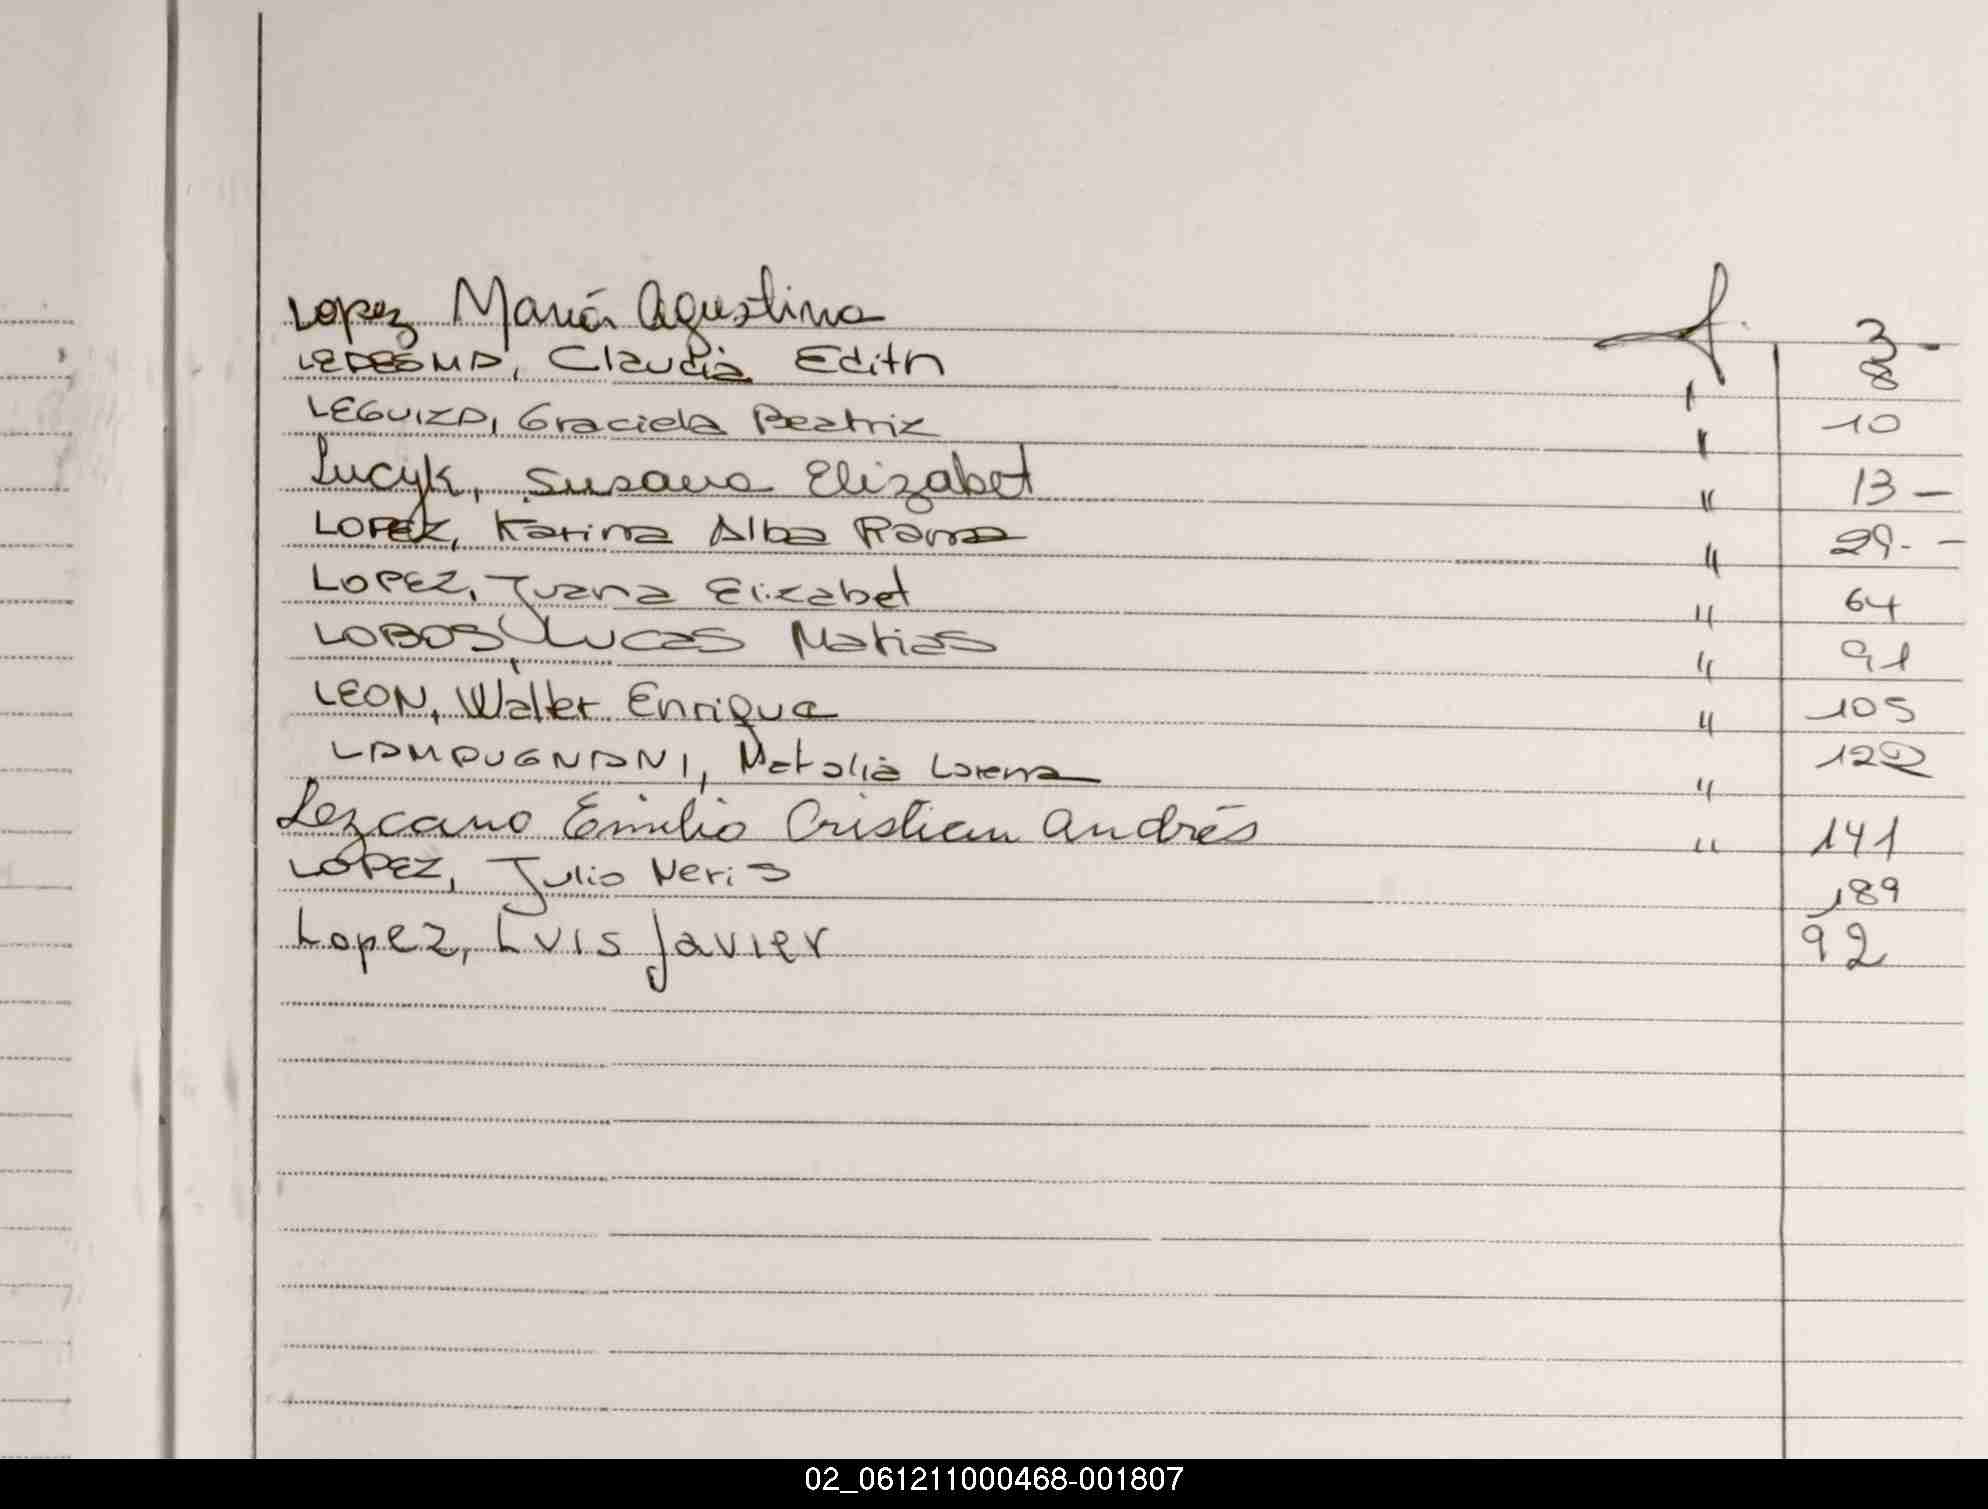 Lopez María Agustina f. 3 -
LEDESMA, Claudia Edith " 8
LEGUIZA, Graciela Beatriz " 10
Lucyk, Susana Elizabet " 13 -
LOPEZ, Karina Alba " 29. -
LOPEZ, Juana Elizabet " 64
LOBOS, Lucas Matias " 91
LEON, Walter Enrique " 105
LAMPUGNANI, Natalia Lorena " 122
Lezcano Emilio Cristian Andrés " 141
LOPEZ, Julio Neris 189
Lopez, Luis Javier 92
02_061211000468-001807